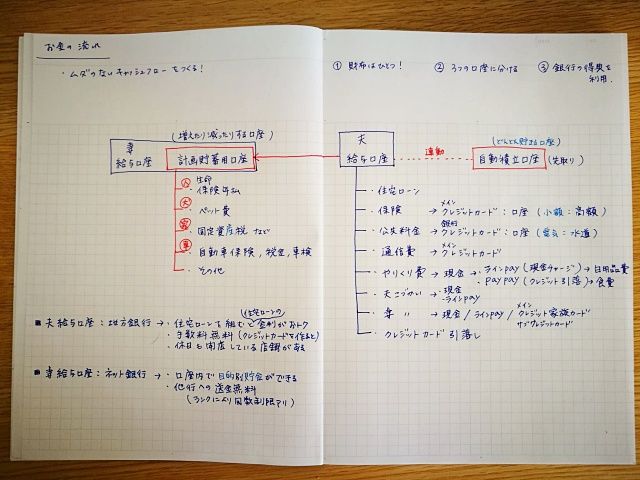 お金の流れ
・ムダのないキャッシュフローをつくる!
① 財布はひとつ!
② 3つの口座に分ける
③ 銀行の得典を利用.
妻
給与口座
(増えたり減ったりする口座)
計画貯蓄用口座
人 生命保険年払
犬 ペット費
家 固定資産税 など
車 自動車保険, 税金, 車検
その他
夫
給与口座
連動
(どんどん貯まる口座)
自動積立口座 (先取り)
・住宅ローン
・保険 → メイン クレジットカード : 口座 (小額 : 高額)
・公共料金 → 銀行 クレジットカード : 口座 (電気 : 水道)
・通信費 → メイン クレジットカード
・やりくり費 → 現金 → ・ラインpay (現金チャージ) → 日用品費
・paypay (クレジット引落) → 食費
・夫こづかい → ・現金
・ラインpay
・妻 〃 → 現金 / ラインpay / メイン クレジット家族カード
サブクレジットカード
・クレジットカード引落し
■ 夫給与口座 : 地方銀行 → ・住宅ローンを組むと(住宅ローンの)金利がおトク
・手数料無料 (クレジットカードを作ると)
・休日も開店している店舗がある
■ 妻給与口座 : ネット銀行 → ・口座内で目的別貯金ができる
・他行への送金無料
(ランクにより回数制限アリ)